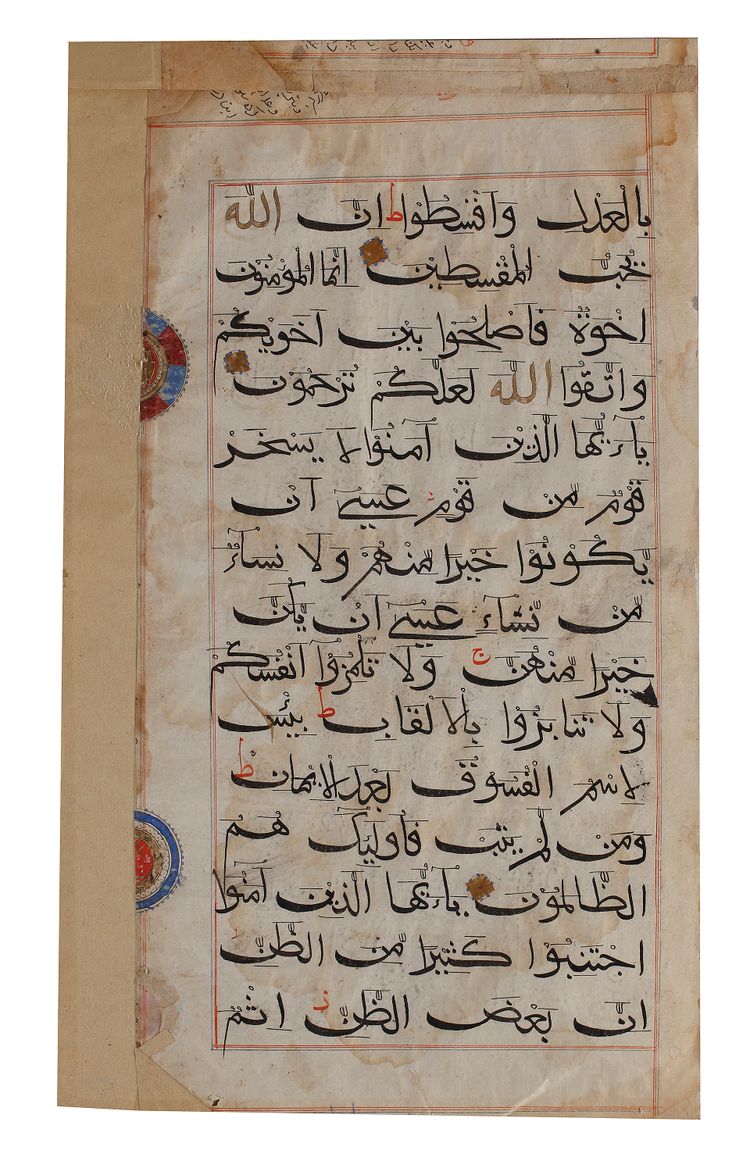 بالعدل واقسطوا ط ان الله
يحب المقسطين انما المؤمنون
اخوة فاصلحوا بين اخويكم
واتقوا الله لعلكم ترحمون
ياءيها الذين آمنوا لا يسخر
قوم من قوم عسى ان
يكونوا خيرا منهم ولا نساء
من نساء عسى ان يكن
خيرا منهن ج ولا تلمزوا انفسكم
ولا تنابزوا بالالقاب ط بئس
الاسم الفسوق بعد الايمان ط
ومن لم يتب فاوليك هم
الظالمون ياءيها الذين آمنوا
اجتنبوا كثيرا من الظن
ان بعض الظن ز اثم